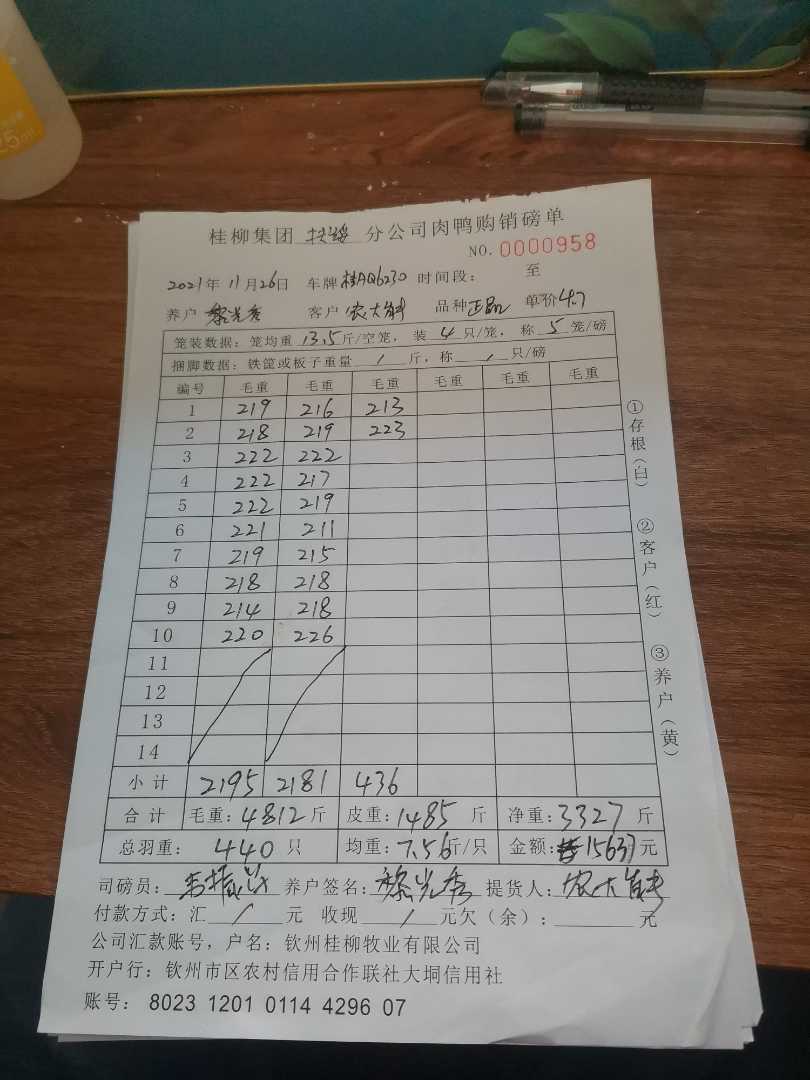 桂柳集团 扶绥 分公司肉鸭购销磅单
NO. 0000958
2021年 11月26日 车牌 桂AQ6230 时间段: 至
养户 黎光秀 客户 农大 品种 正品 单价 4.7
笼装数据: 笼均重 13.5 斤/空笼, 装 4 只/笼, 称 5 笼/磅
捆脚数据: 铁筐或板子重量 / 斤, 称 / 只/磅
编号 毛重 毛重 毛重 毛重 毛重 毛重
1 219 216 213
2 218 219 223
3 222 222
4 222 217
5 222 219
6 221 211
7 219 215
8 218 218
9 214 218
10 220 226
11
12
13
14
小计 2195 2181 436
合计 毛重: 4812 斤 皮重: 1485 斤 净重: 3327 斤
总羽重: 440 只 均重: 7.56 斤/只 金额: 15637 元
司磅员: 养户签名: 黎光秀 提货人: 农大
付款方式: 汇 / 元 收现 / 元欠(余): 元
公司汇款账号, 户名: 钦州桂柳牧业有限公司
开户行: 钦州市区农村信用合作联社大垌信用社
账号: 8023 1201 0114 4296 07
①存根(白)
②客户(红)
③养户(黄)